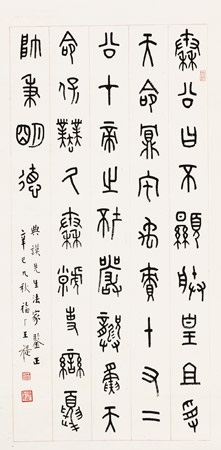 秦公曰不顯朕皇且受
天命鼏宅禹責十又二
公才帝之坏嚴龏夤天
命保業氒秦虩事蠻夏
帥秉明德
典謨先生法家鑒正
辛巳九秋福厂王禔